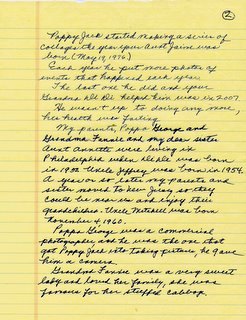 ②
Poppy Jack started making a series of
collages the year your Aunt Jaime was
born (May 19, 1976)
Each year he put more photos of
events that happened each year.
The last one he did and your
Grandma helped him was in 2007
He wasn't up to doing any more,
his health was failing
My parents, Poppa George and
Grandma Fannie and my dear sister
Aunt Annette were living in
Philadelphia when was born
in 19 Uncle Jeffrey was born in 1954.
A year or so later my parents and
sister moved to New Jersey so they
could be near us and enjoy their
grandchildren. Uncle Mitchell was born
November 4, 1960.
Poppa George was a commercial
photographer and he was the one that
got Poppy Jack into taking picture, he gave
him a camera.
Grandma Fannie was a very sweet
lady and loved her family, she was
famous for her stuffed cabbage.